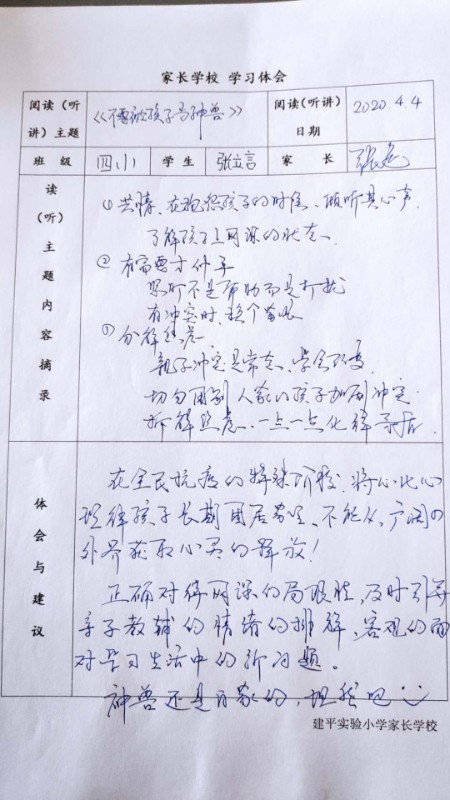 家长学校 学习体会
阅读（听讲）主题 《不要被孩子的神兽》 阅读（听讲）日期 2020.4.4
班 级 四小 学 生 张立言 家 长 张
读（听）主题内容摘录
①共情、在 孩子的时候、倾听其心声
了解孩子上网课的状态、
②有需要才伸手
陪听不是帮助而是打扰
有冲突时，换个
③分解焦虑
亲子冲突是常态、学会
切勿用别人家的孩子加剧冲突
拆解焦虑、一点一点化解矛盾.
体会与建议
在全民抗疫的特殊阶段，将心比心
理解孩子长期困居 、不能从广阔的
外界获取心灵的释放！
正确对待网课的局限性，及时引导
亲子教辅的情绪的排解，客观的面
对学习生活中的新问题。
神兽还是自家的，理解吧
建平实验小学家长学校